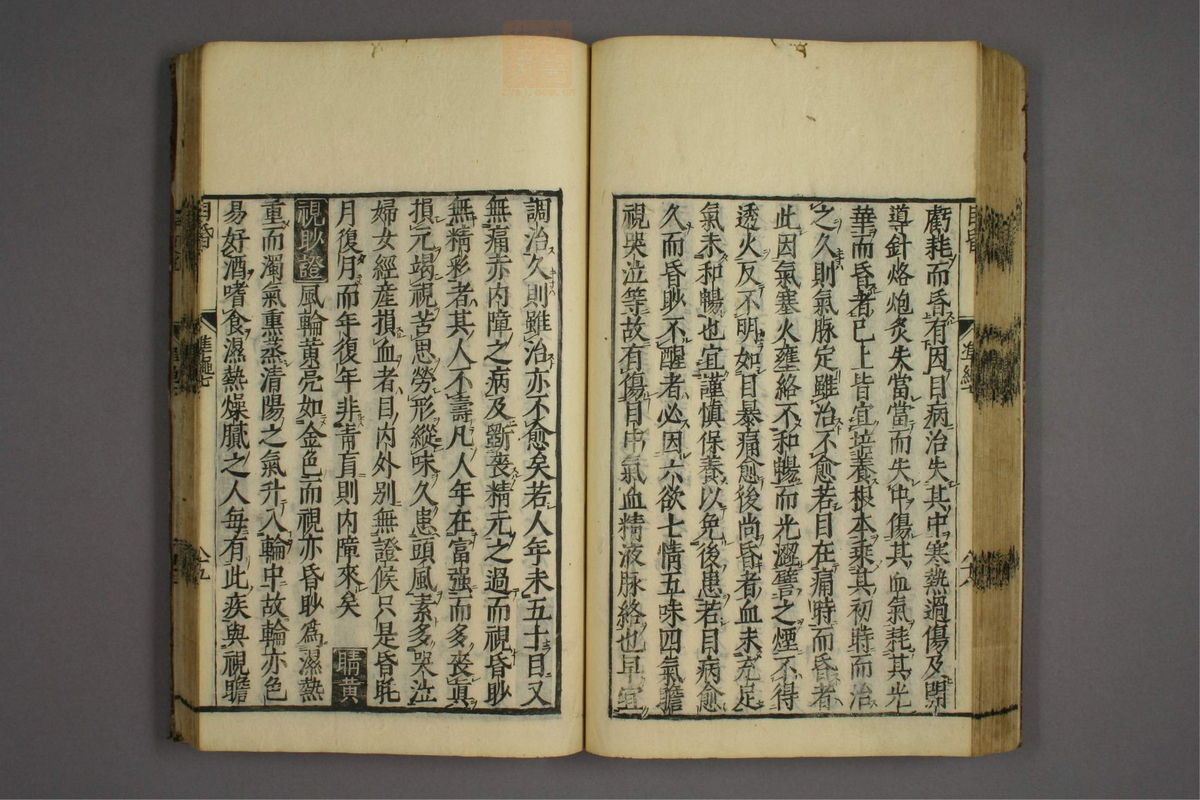 虧耗而昏有因目病治失其中寒熱過傷及開
導針烙炮灸失當當而失中傷其血氣耗其光
華而昏者已上皆宜培養根本乘其初時而治
之久則氣脉定雖治不愈若目在痛時而昏者
此因氣塞火壅絡不和暢而光澁譬之煙不得
透火反不明如目暴痛愈後尚昏者血未充足
氣未和暢也宜謹慎保養以免後患若目病愈
久而昏眇不醒者必因六欲七情五味四氣瞻
視哭泣等故有傷目中氣血精液脉絡也早宜
調治久則雖治亦不愈矣若人年未五十目又
無痛亦内障之病及斵喪精元之過而視昏眇
無精彩者其人不壽凡人年在富强而多喪眞
損元竭視苦思勞形縱味久患頭風素多哭泣
婦女經産損血者目内外別無證候只是昏眊
月復月而年復年非青盲則内障來矣 睛黄
視眇證風輪黄亮如金色而視亦昏眇爲濕熱
重而濁氣熏蒸清陽之氣升入輪中故輪亦色
易好酒嗜食濕熱燥膩之人每有此疾與視瞻